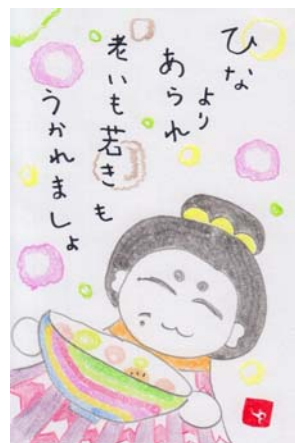 ひな
より
あられ
老いも若きも
うかれましょ